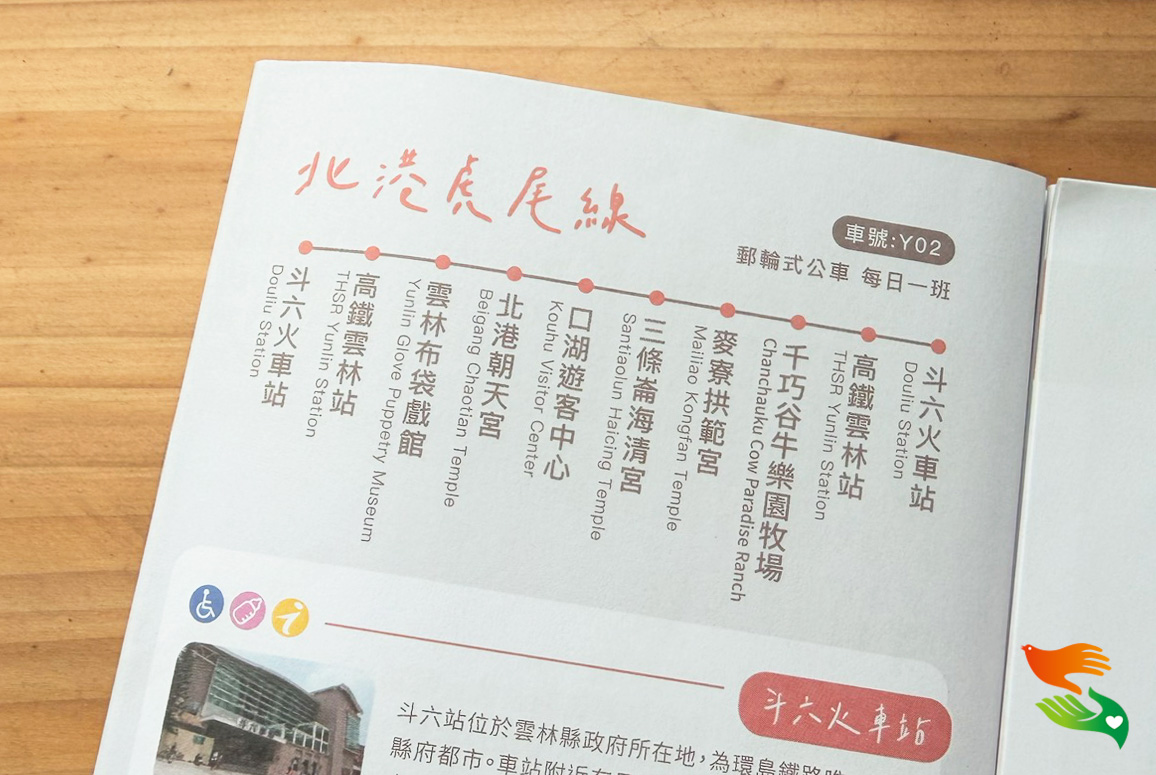 北港虎尾線
車號:Y02
郵輪式公車 每日一班
斗六火車站
Douliu Station
高鐵雲林站
THSR Yunlin Station
雲林布袋戲館
Yunlin Glove Puppetry Museum
北港朝天宮
Beigang Chaotian Temple
口湖遊客中心
Kouhu Visitor Center
三條崙海清宮
Santiaolun Haicing Temple
麥寮拱範宮
Mailiao Kongfan Temple
千巧谷牛樂園牧場
Chanchauku Cow Paradise Ranch
高鐵雲林站
THSR Yunlin Station
斗六火車站
Douliu Station
斗六火車站
斗六站位於雲林縣政府所在地,為環島鐵路
縣府都市。車站附近